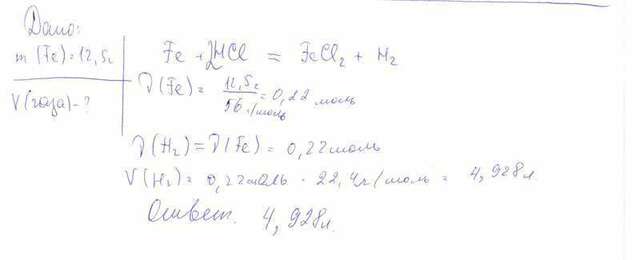 Дано:
m (Fe) = 12,5г
V (газа) - ?
Fe + 2HCl = FeCl₂ + H₂
ν(Fe) = 12,5г / 56 г/моль = 0,22 моль
ν(H₂) = ν(Fe) = 0,22 моль
V(H₂) = 0,22 моль · 22,4 л/моль = 4,928 л
Ответ. 4,928 л.